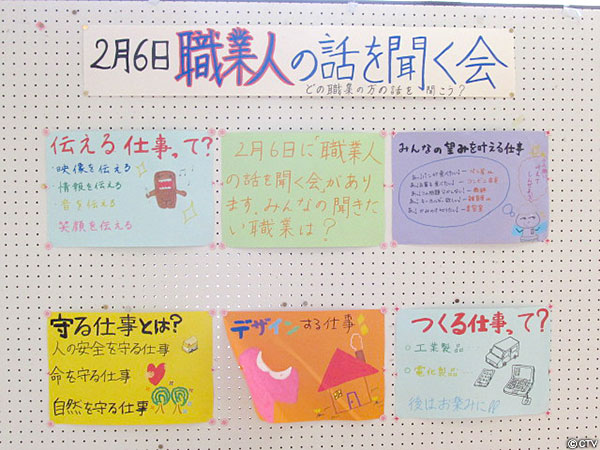 2月6日 職業人の話を聞く会
どの職業の方の話を聞こう?
伝える仕事って?
・映像を伝える
・情報を伝える
・音を伝える
・笑顔を伝える
2月6日に職業人
の話を聞く会があり
ます。みんなの聞きた
い職業は?
みんなの望みを叶える仕事
守る仕事とは?
人の安全を守る仕事
命を守る仕事
自然を守る仕事
デザインする仕事
つくる仕事って?
○工業製品…
○電化製品…
後はお楽しみに!!
© CTV